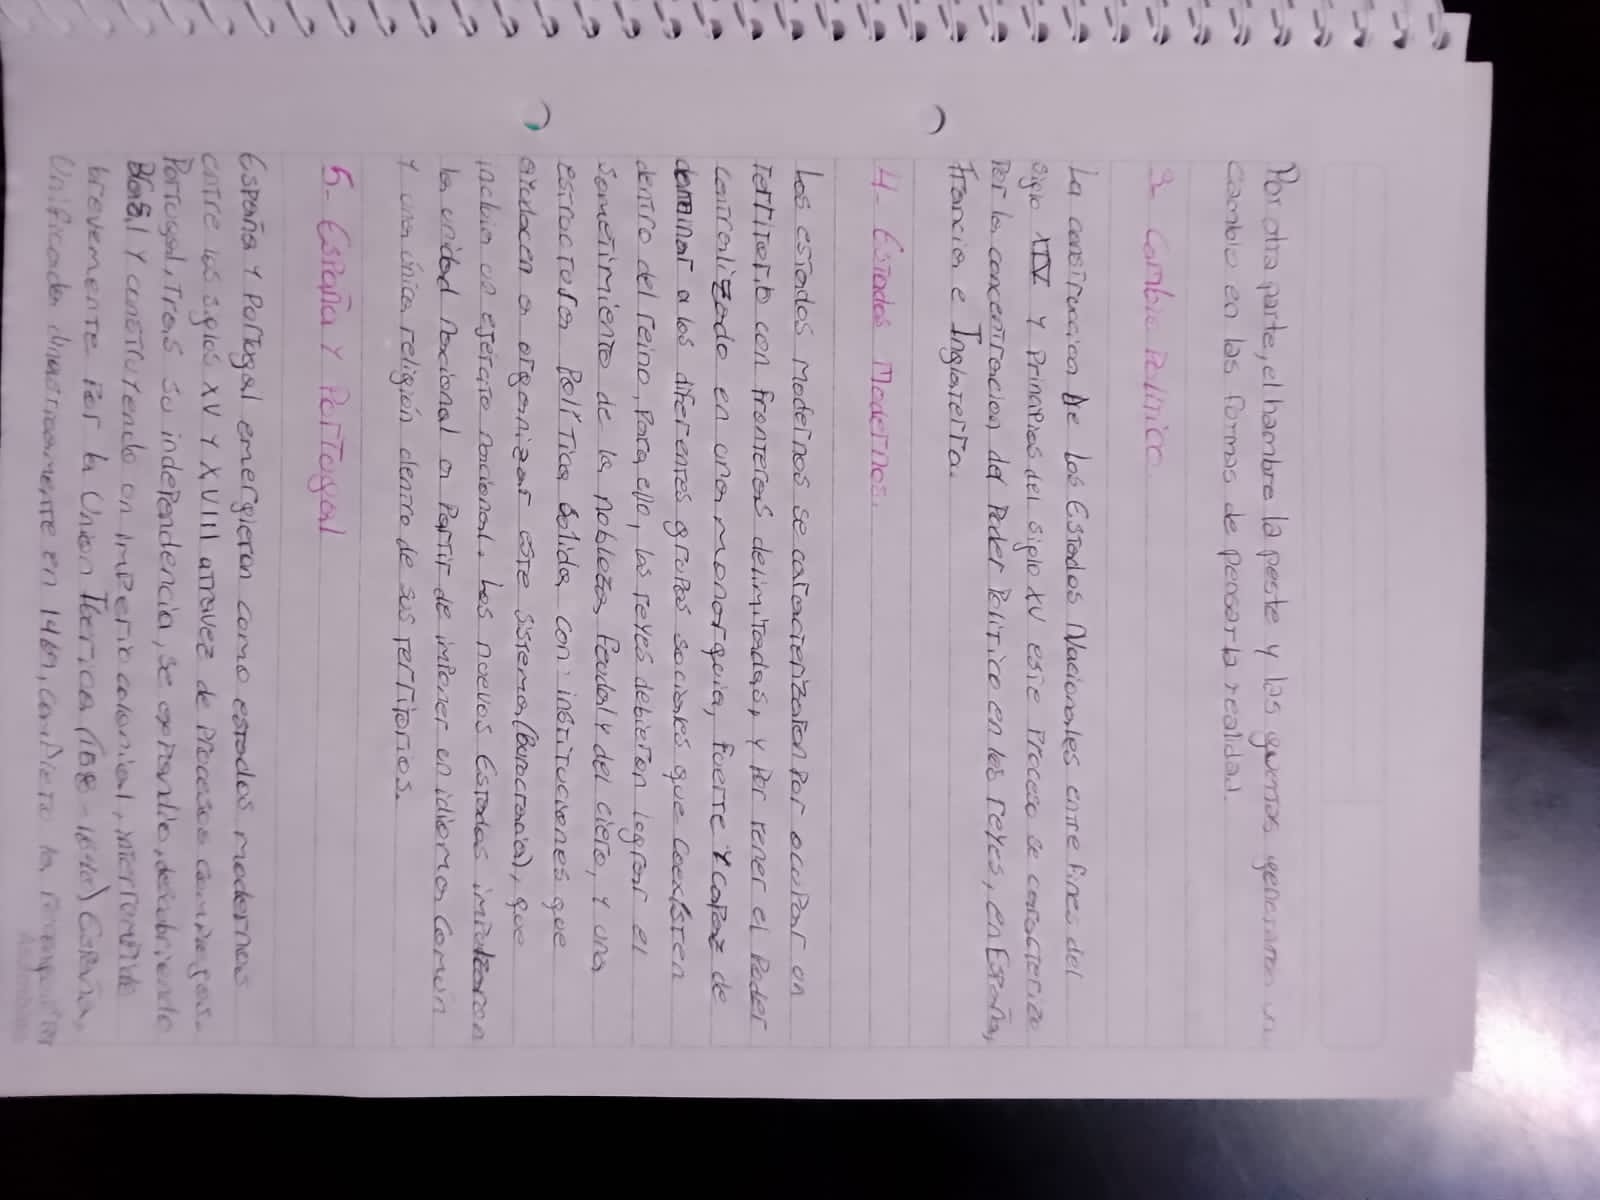 Por otra parte, el hambre la peste y las guerras generaron un
cambio en las formas de pensar la realidad.
3- Cambio Político
La construccion de los Estados Nacionales entre fines del
siglo XIV y principios del siglo XV este proceso se caracterizo
Por la concentracion del Poder Politico en los reyes, en España,
Francia e Inglaterra.
4- Estados Modernos.
Los estados modernos se caracterizaron Por ocupar un
territorio con fronteras delimitadas, y Por tener el Poder
centralizado en una monarquia, fuerte y capaz de
dominar a los diferentes grupos sociales que coexisten
dentro del reino, Para ello, los reyes debieron lograr el
sometimiento de la nobleza feudal y del clero, y una
estructura Política solida con instituciones que
ayudaen a organizar este sistema (Burocracia), que
incluia un ejército nacional. Los nuevos Estados impulsaron
la unidad nacional a Partir de imponer en idioma común
y una única religión dentro de sus territorios.
5- España y Portugal
España y Portugal emergieron como estados modernos
entre los siglos XV y XVIII atravez de Procesos
Portugal, Tras su independencia, se expandio, descubriendo
Brasil y construyendo un imperio colonial,
brevemente Por la Union Iberica (1580-1640) España,
Unificada dinasticamente en 1469, completo la